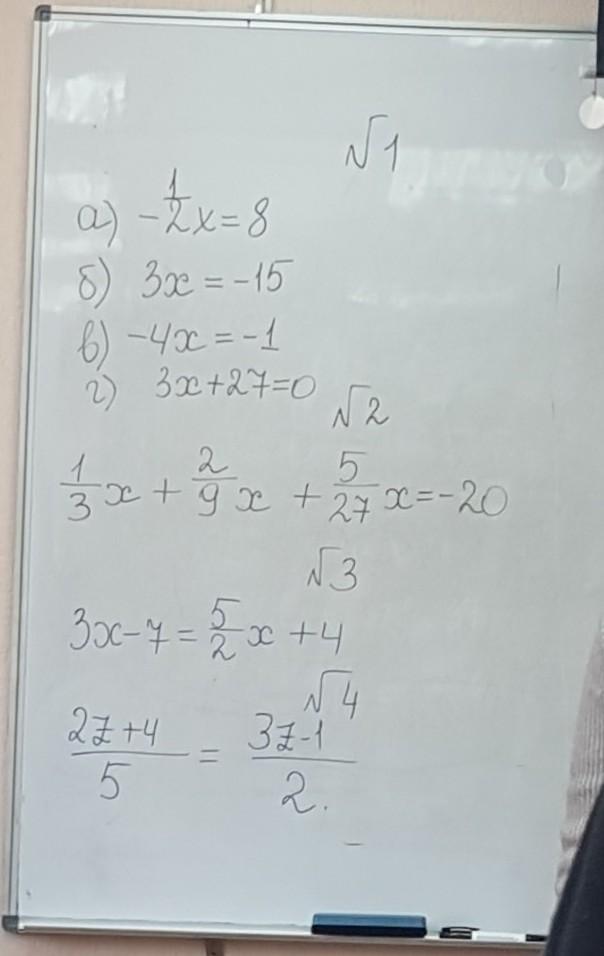 √1
а) -1/2x=8
б) 3x=-15
в) -4x=-1
г) 3x+27=0
√2
1/3x + 2/9x + 5/27x=-20
√3
3x-7=5/2x+4
√4
2z+4/5 = 3z-1/2.